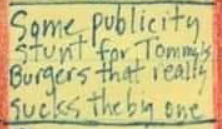 Some publicity
stunt for Tommy's
Burgers that really
sucks the big one